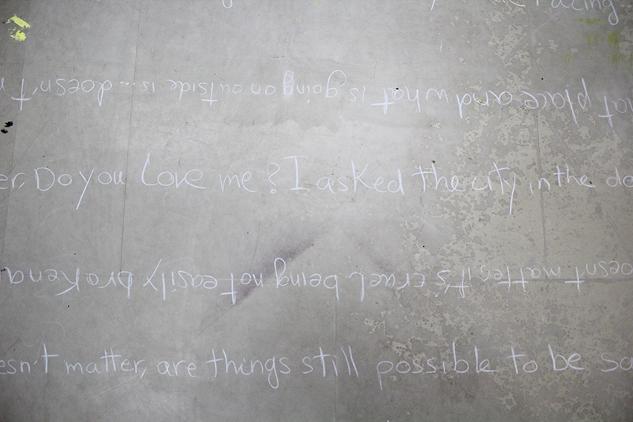 facing
place around what is going on outside is ... doesn't
er, Do you Love me? I asked the city in the do
oesn't matter, it's cruel being not easily broken and
esn't matter, are things still possible to be so